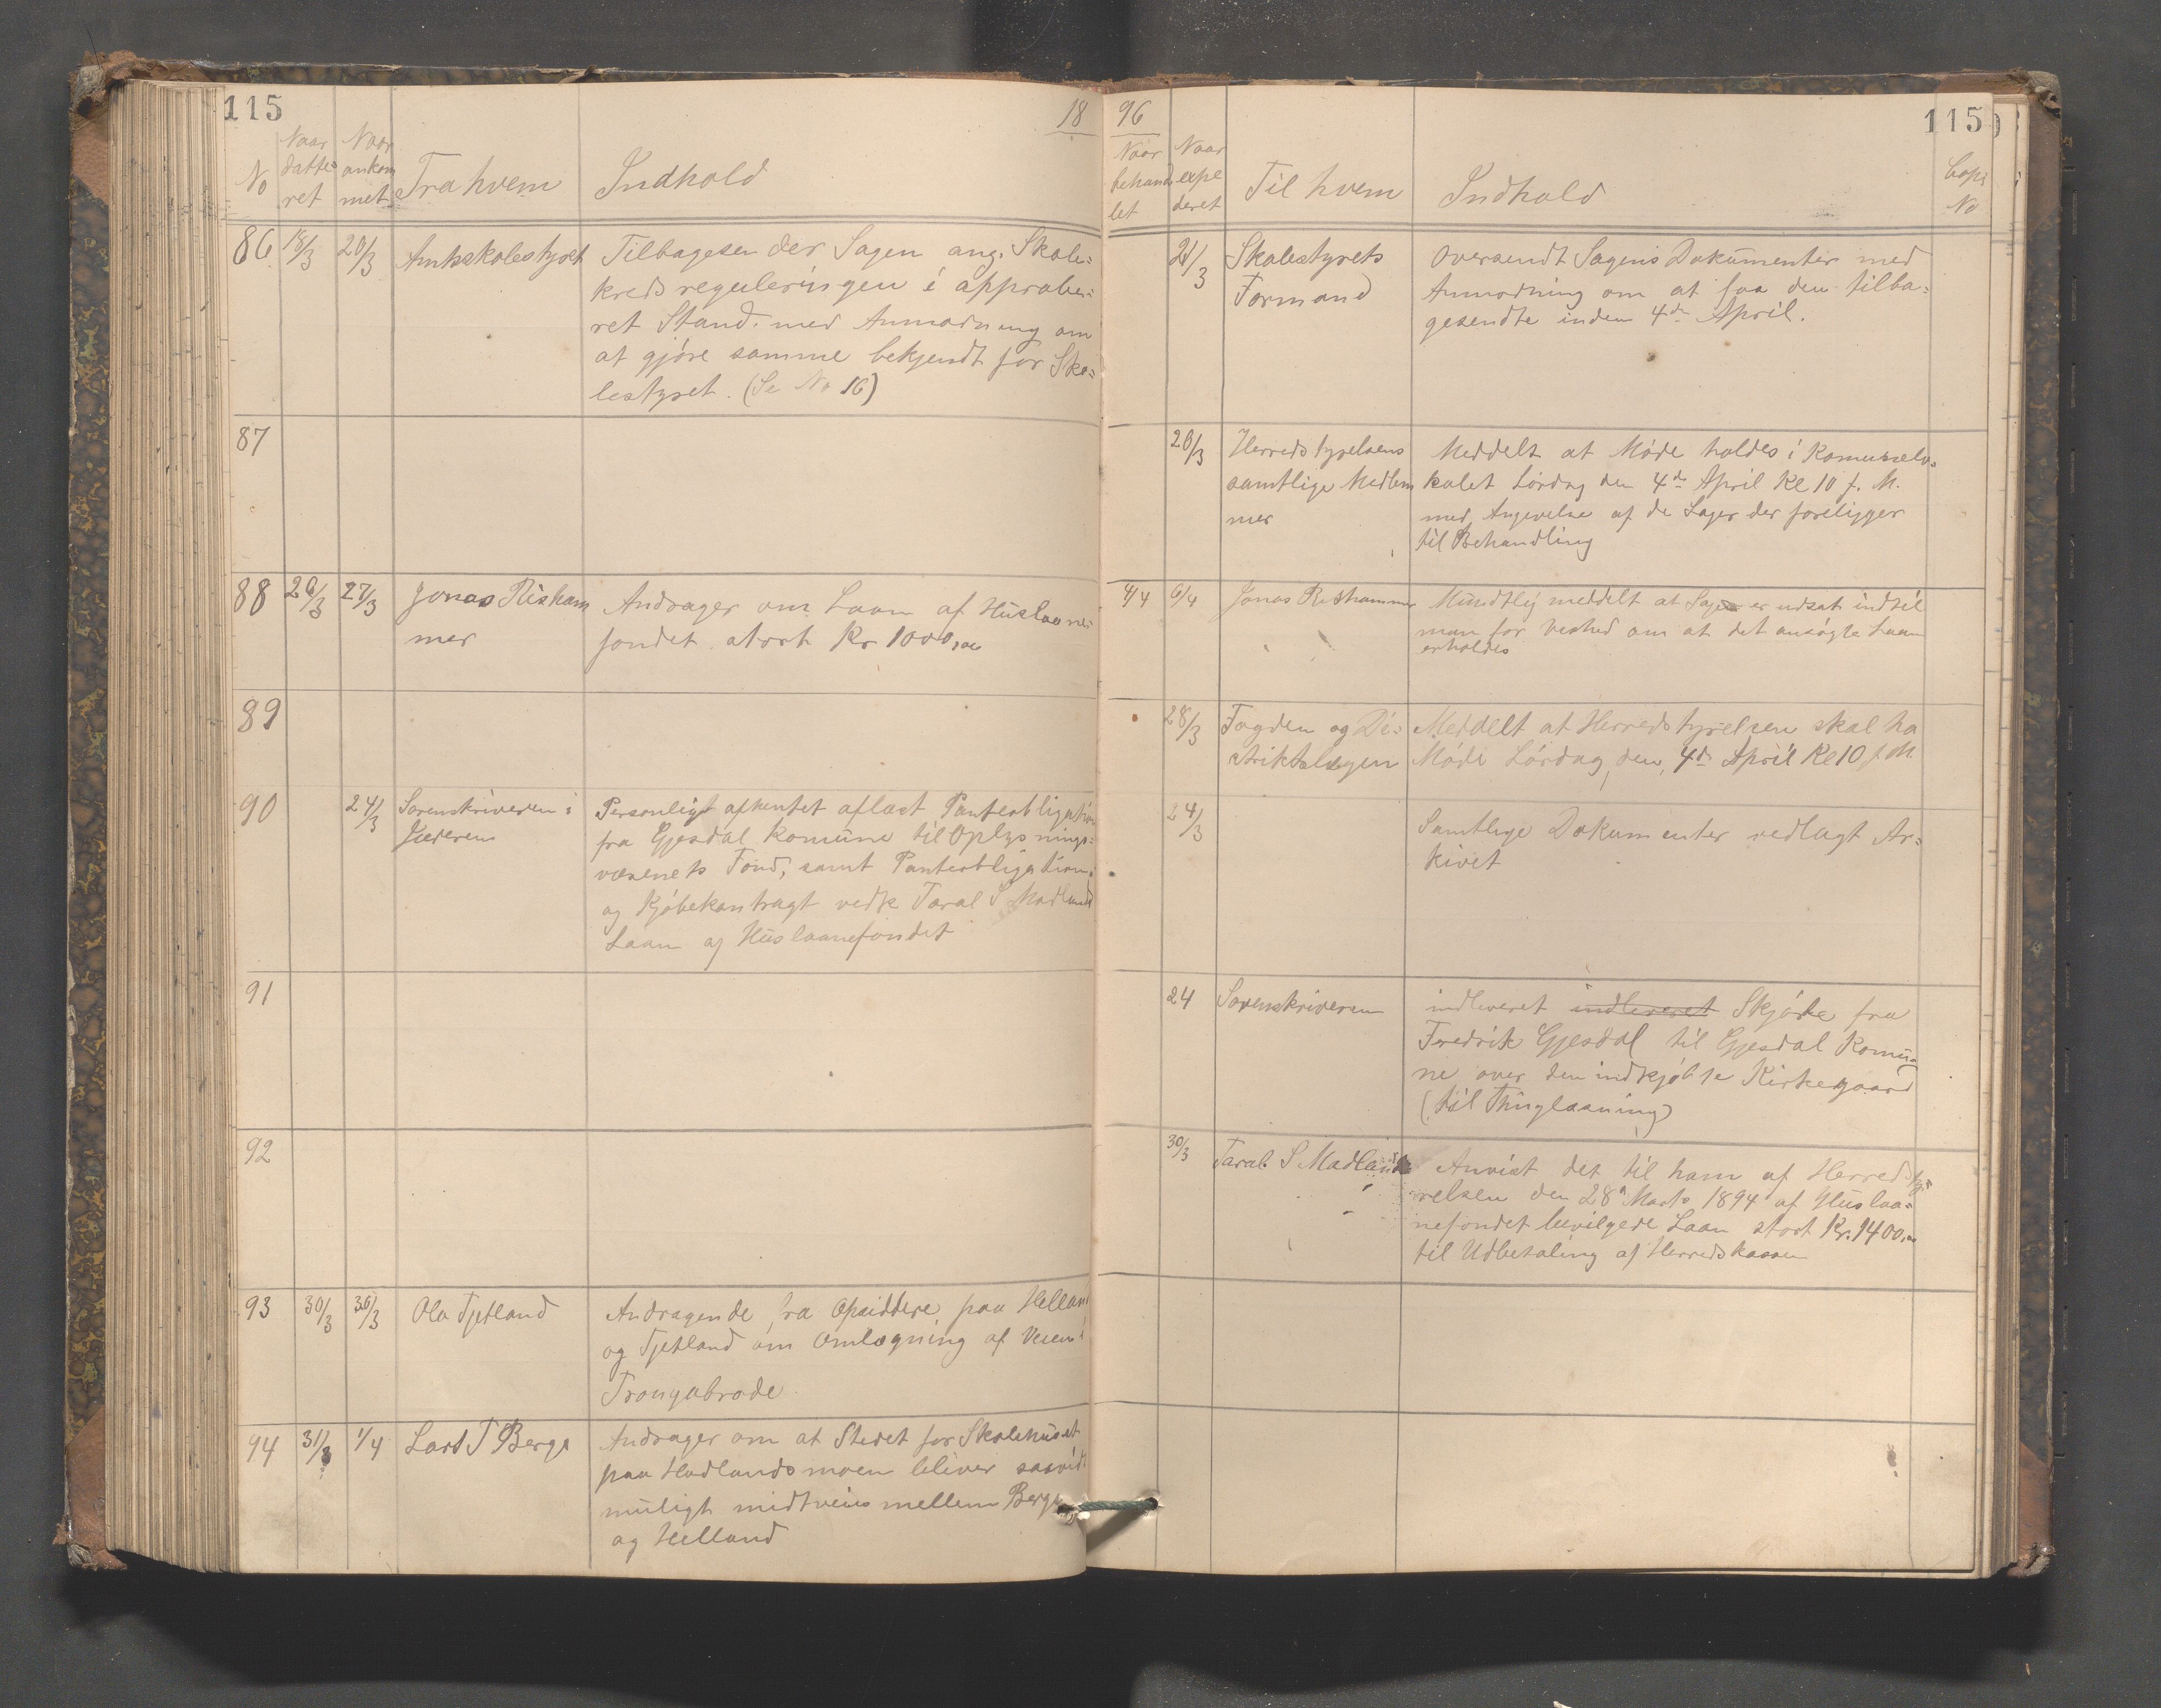 115
18
No
Naar datte= ret
Naar ankom met
Fra hvem
Indhold
86
18/3
20/3
Amtsskolestyret
Tilbagesender Sagen ang. Skole=
kredsreguleringen i approbe=
ret Stand med Anmodning om
at gjøre samme bekjendt for Sko=
lestyret. (Se No 16)
87
88
26/3
27/3
Jonas Risham
mer
Andrager om Laan af Huslaane=
fondet stort Kr 1000,00
89
90
24/3
Sorenskriveren i
Jæderen
Personligt afhentet aflæst Panteobligation
fra Gjesdal Komune til Oplysnings=
væsenets Fond, samt Panteobligation
og Kjøbekontragt vedk Taral S Madlands
Laan af Huslaanefondet
91
92
93
30/3
30/3
Ola Tjetland
Andragende fra Opsiddere paa Helland
og Tjetland om Omlægning af Veien i
94
31/3
1/4
Lars T Berge
Andrager om at Stedet for Skolehuset
paa Hadlandsmoen bliver saavidt
muligt midtveis mellem Berge
og Helland
96
115
Naar behand let
Naar expe deret
Til hvem
Indhold
Copi No
21/3
Skolestyrets
Formand
Oversendt Sagens Dokumenter med
Anmodning om at faa den tilba=
gesendte inden 4de April.
26/3
Herredstyrelsens
samtlige Medlem
mer
Meddelt at Møde holdes i Komunelo=
kalet Lørdag den 4de April Kl 10 f. M.
med Angivelse af de Sager der foreligger
til Behandling
4/4
6/4
Jonas Rishammer
Mundtlig meddelt at Sagen er udsat indtil
man for Vished om at det ansøgte Laan
erholdes
28/3
Fogden og Di=
striktslægen
Meddelt at Herredstyrelsen skal ha
Møde Lørdag den 4de April Kl 10 f. M.
24/3
Samtlige Dokumenter vedlagt Ar=
kivet
24
Sorenskriveren
indleveret indleveret Skjøde fra
Fredrik Gjesdal til Gjesdal Komu=
ne over den indkjøbte Kirkegaard
(til Thinglæsning)
30/3
Taral S Madland
Anvist det til ham af Herredsty=
relsen den 28de Marts 1894 af Huslaa=
nefondet bevilgede Laan stort Kr. 1400,00
til Udbetaling af Herredskassen